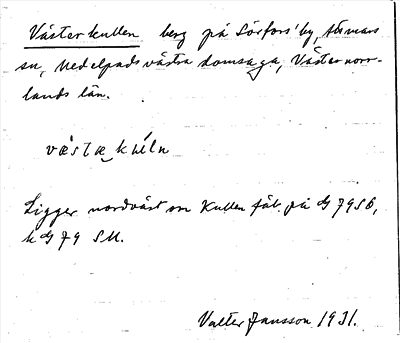 Västerkullen berg på Sörfors' by, Attmars
sn, Medelpads västra domsaga, Västernorr-
lands län.
västa kúln
Ligger nordväst om Kullen fäb. på G 79 SO,
k G 79 SU.
Valter Jansson 1931.